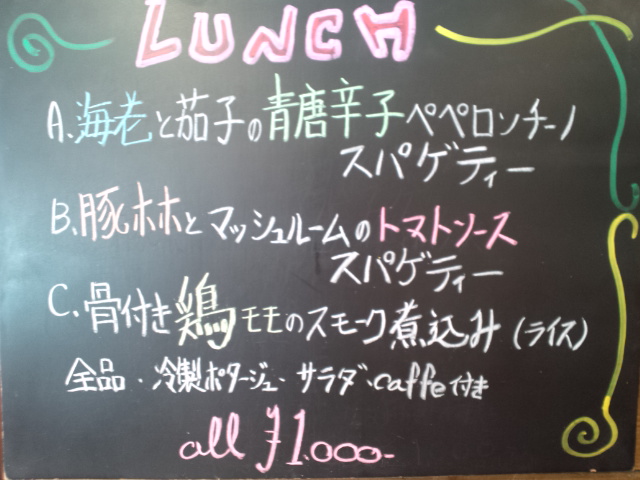 LUNCH
A. 海老と茄子の青唐辛子ペペロンチーノ
スパゲティー
B. 豚ホホとマッシュルームのトマトソース
スパゲティー
C. 骨付き鶏モモのスモーク煮込み(ライス)
全品・冷製ポタージュ・サラダ・caffe付き
all ¥1.000-